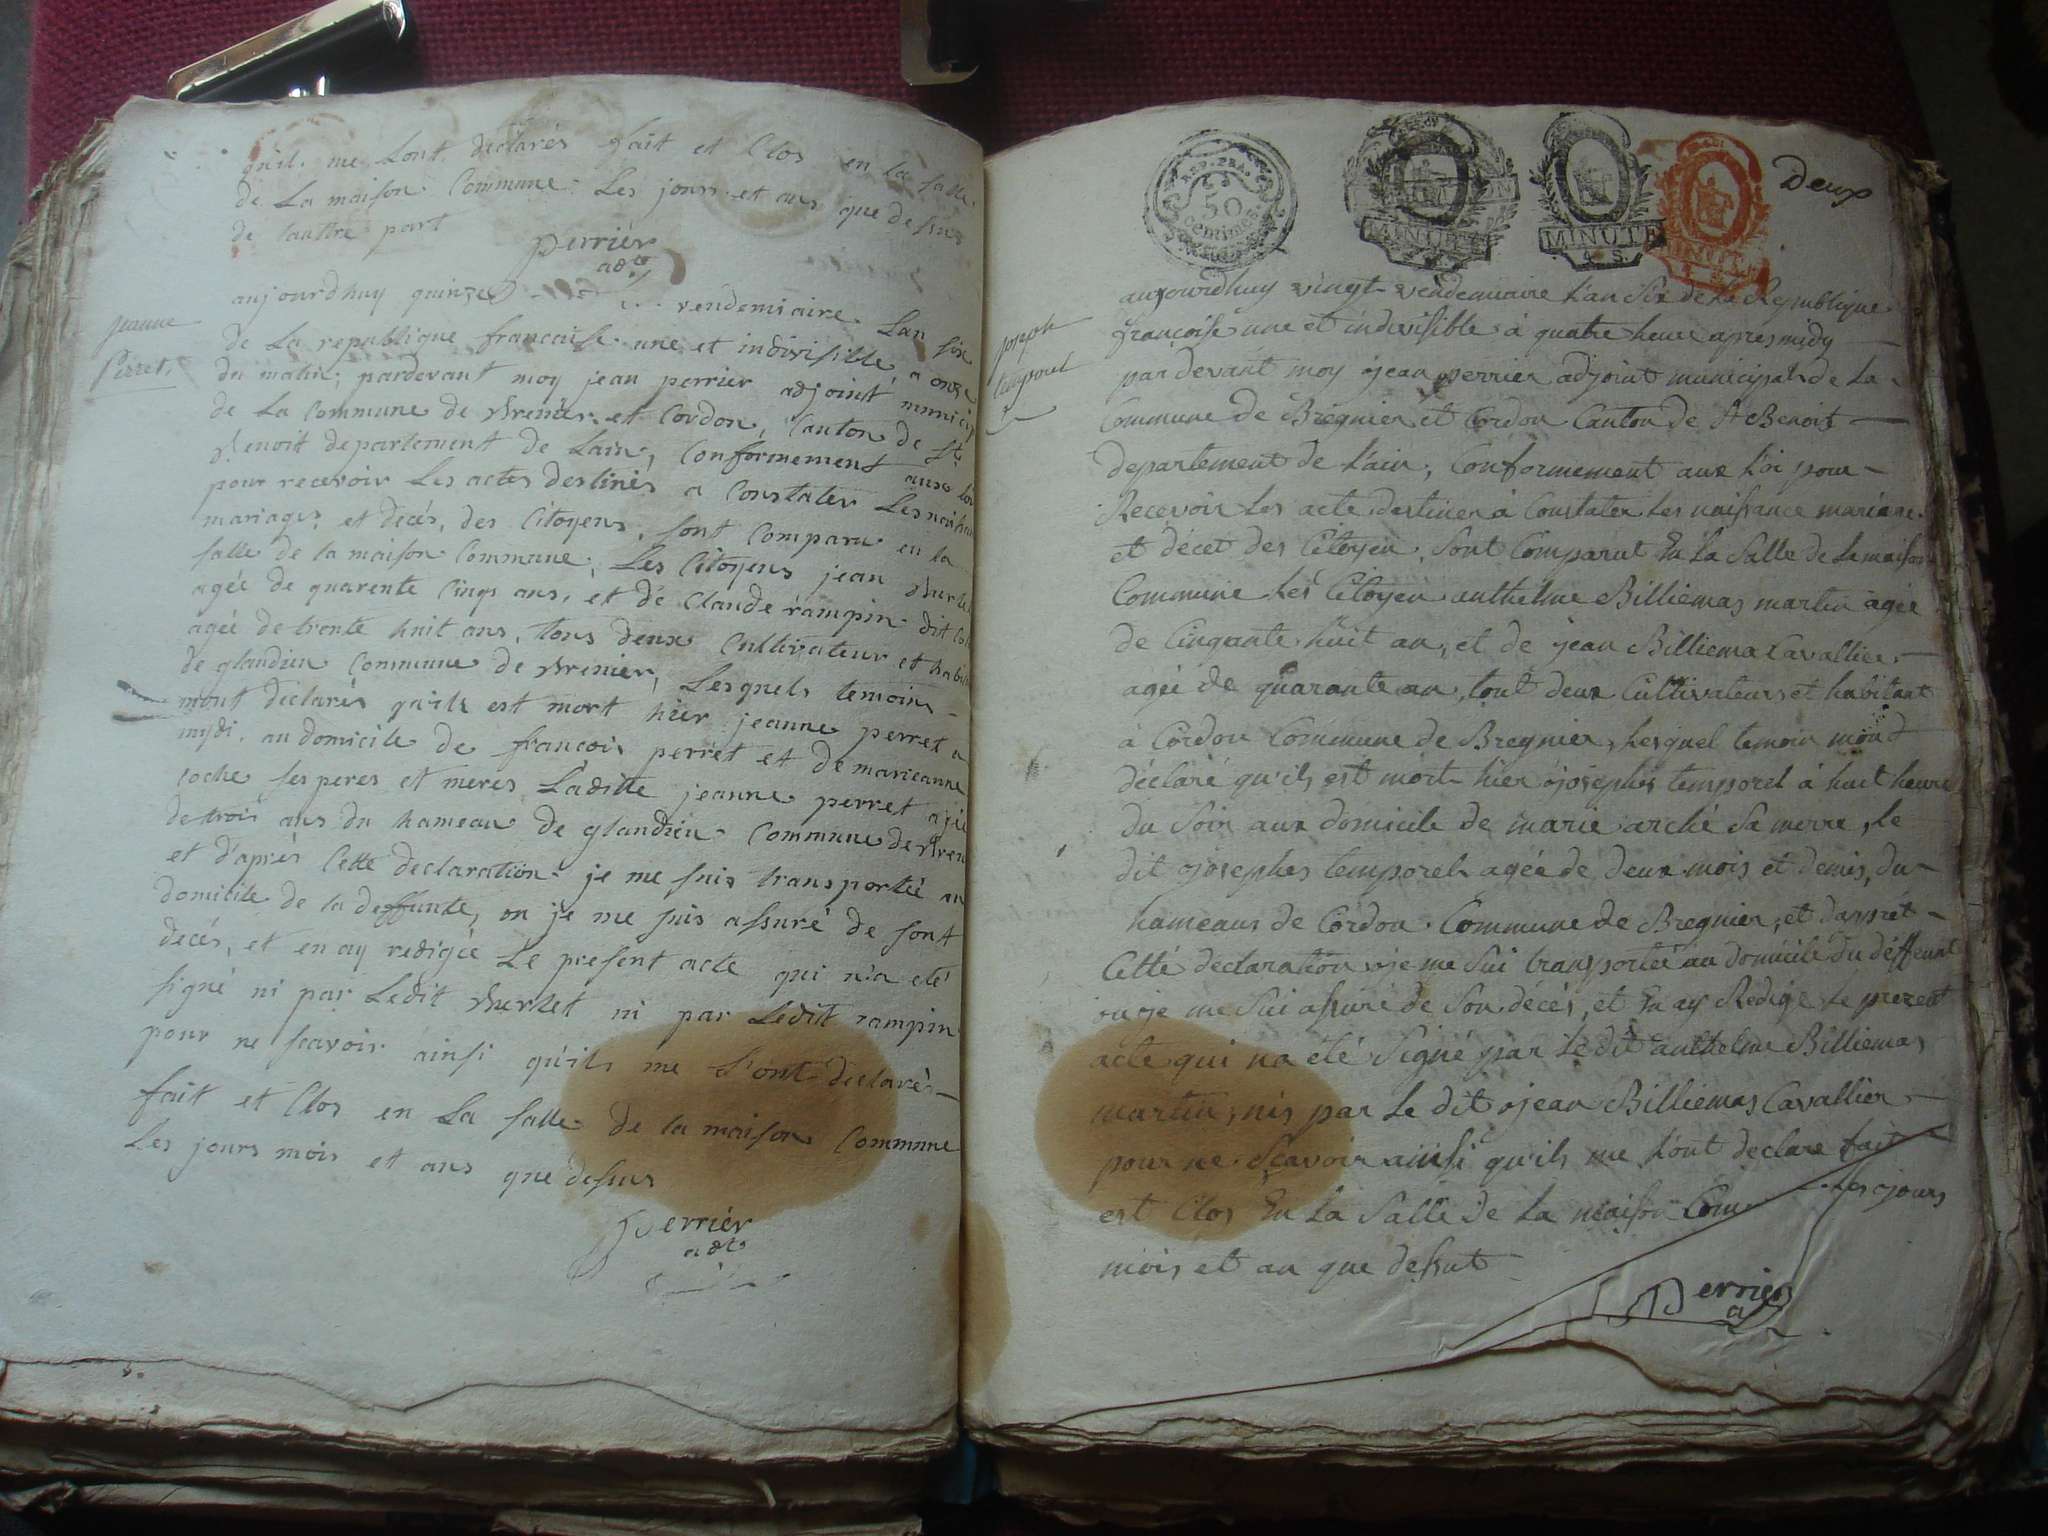 qu'il me l'ont déclarés fait et Clos en la salle
de La maison Commune Les jours et ans que dessus
de lauttre part
perrier
adt
jeanne
Perret
aujourdhuy quinze vendemiaire Lan six
de La republique francaise une et indivisible, a onze
du matin; pardevant moy jean perrier adjoint munici
de La Commune de Brenier et Cordon, Canton de St
Benoit departement de Lain, Conformement aux loi
pour recevoir Les actes destinés a Constater Les naissan
mariages, et décés, des Citoyens, sont Comparu en la
salle de la maison Commune, Les Citoyens jean
agée de quarente Cinqs ans, et de Claude rampin dit
agée de trente huit ans, tous deux Cultivateur et habit
de glandieu Commune de Brenier, Lesquels temoins
mont déclarés qu'ils est mort hier jeanne perret a
midi, au domicile de francois perret et de marieanne
coche ses peres et meres Laditte jeanne perret agée
de trois ans du hameau de glandieu Commune de Bren
et d'après Cette declaration je me suis transportée au
domicile de la deffunte, ou je me suis assuré de sont
decés, et en ay redigée Le present acte qui n'a eté
signé ni par Ledit Burlet ni par Ledit rampin
pour ne scavoir ainsi qu'ils me l'ont declarés
fait et Clos en La salle de la maison Commune
Les jours mois et ans que dessus
Perrier
adt
REP. FRA.
50
Centimes
MINUTE
MINUTE
4 S.
MINUTE
Deux
joseph
temporel
aujourdhuy vingt vendemiaire l'an six de la Republique
francoise une et indivisible à quatre heure apres midy
par devant moy jean perrier adjoint municipal de La
Commune de Bregnier et Cordon Canton de St Benoit
departement de l'ain, Conformement aux l'oi pour
Recevoir Les acte destiner à Constater Les naissance mariage
et décet des Citoyen, sont Comparut En La Salle de La maison
Commune Les Citoyen anthelme Billiemas martin agée
de Cinqante huit an, et de jean Billiemas Cavallier
agée de quarante an, tout deux Cultivateurs et habitant
à Cordon Commune de Bregnier, Lesquel temoin mont
déclaré qu'ils est mort hier josephs temporel à huit heure
du soir aux domicile de marie arché sa merre, Le
dit josephs temporel agée de deux mois et demis, du
hameaux de Cordon Commune de Bregnier, et d'aprét
Cette declaration je me sui transportée au domicile du deffeunt
ou je me sui assuré de son décés, et En ay Redige Le prezent
acte qui na été Signé par Le dit anthelme Billiemas
martin, nis par Le dit jean Billiemas Cavallier
pour ne scavoir ainsi qu'ils me l'ont declare fait
est Clos En La Salle de La maison Com Les jours
mois et an que dessut
Perrier